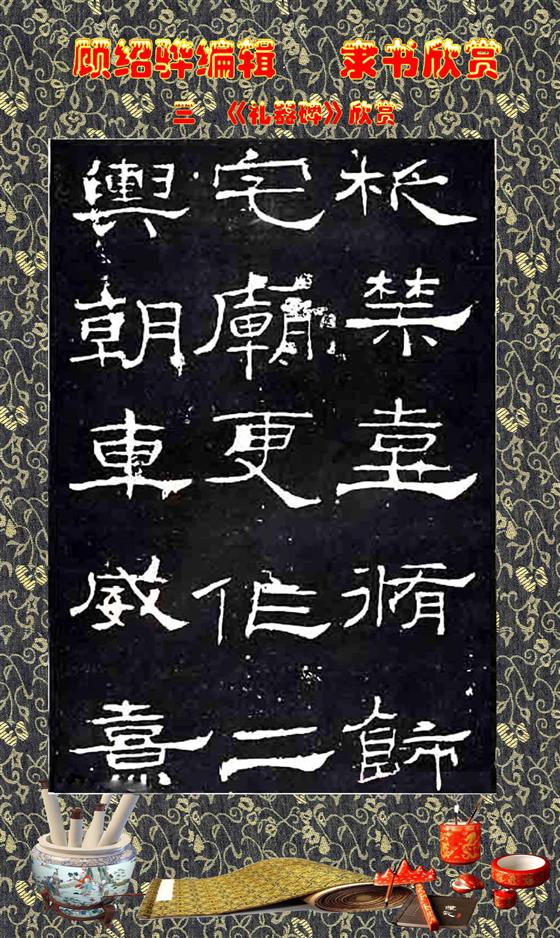 顾绍骅编辑 隶书欣赏
三 《礼器碑》欣赏
柉禁壺脩飾
宅廟更作二
輿朝車威熹